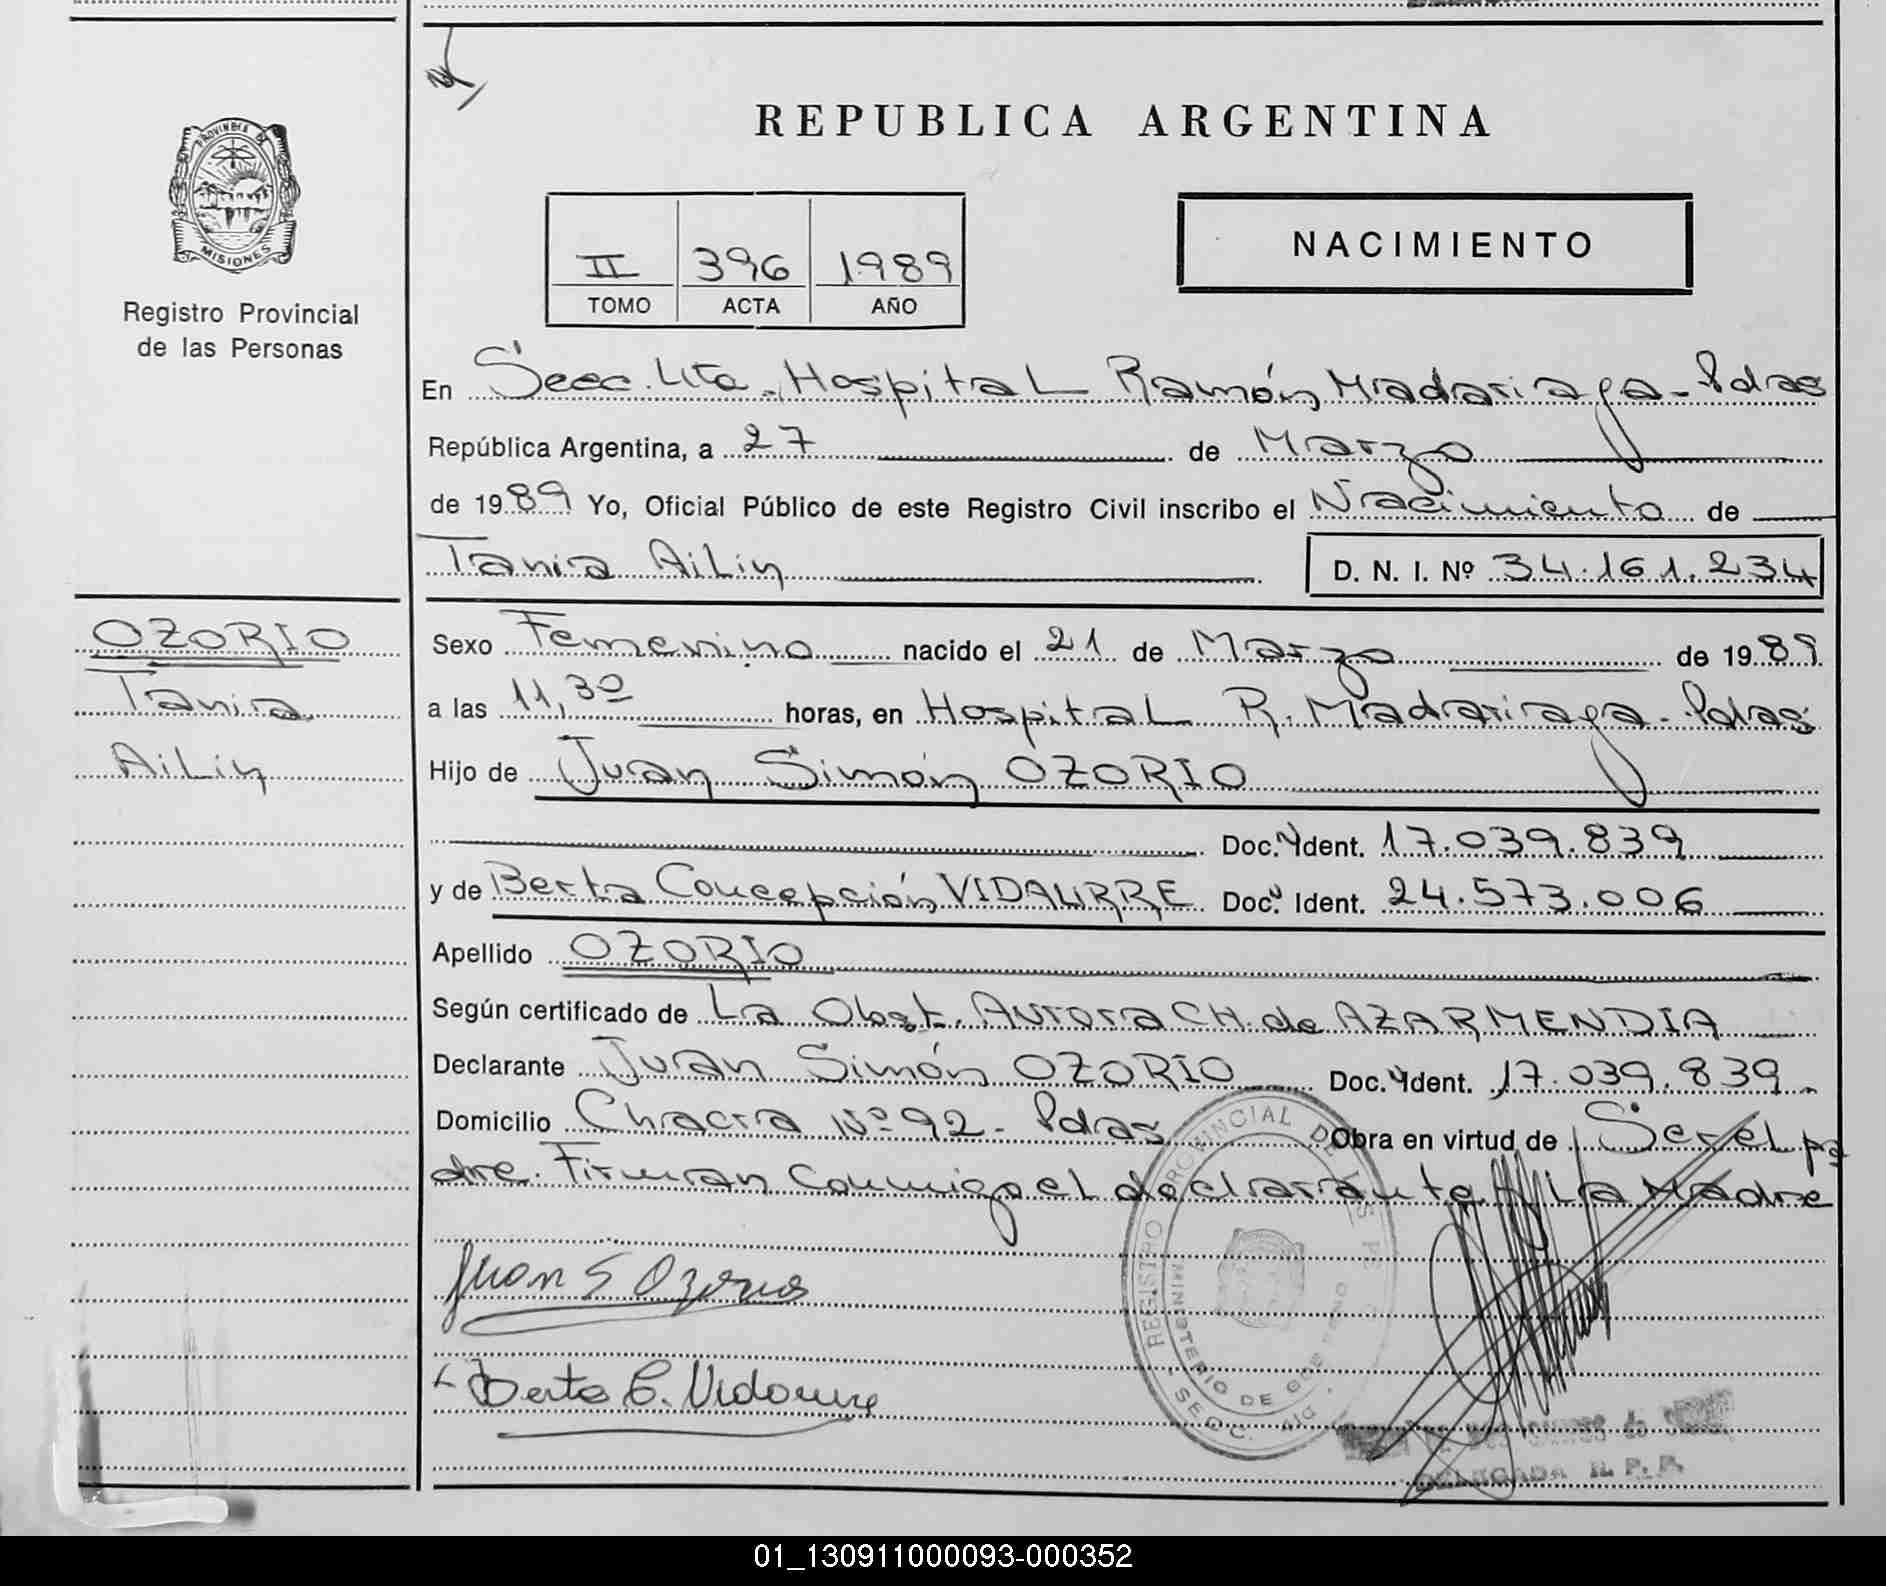 REPUBLICA ARGENTINA
PROVINCIA DE
MISIONES
Registro Provincial
de las Personas
II 396 1989
TOMO ACTA AÑO
NACIMIENTO
En Secc. 4ta. Hospital Ramón Madariaga - Pdas
República Argentina, a 27 de Marzo
de 1989 Yo, Oficial Público de este Registro Civil inscribo el Nacimiento de
Tania Ailin D. N. I. Nº 34.161.234
OZORIO
Tania
Ailin
Sexo Femenino nacido el 21 de Marzo de 1989
a las 11,30 horas, en Hospital R. Madariaga - Pdas
Hijo de Juan Simón OZORIO
Doc. Ident. 17.039.839
y de Berta Concepción VIDAURRE Doc. Ident. 24.573.006
Apellido OZORIO
Según certificado de La Obst. Aurora CH. de AZARMENDIA
Declarante Juan Simón OZORIO Doc. Ident. 17.039.839
Domicilio Chacra Nº 92 - Pdas Obra en virtud de Ser el pa
dre. Firman Conmigo el declarante y La Madre
Juan S Ozorio
Berta C. Vidaurre
REGISTRO PROVINCIAL DE LAS
MINISTERIO DE GOBIERNO
SECC. 4ta
DELEGADA R. P. P.
01_130911000093-000352